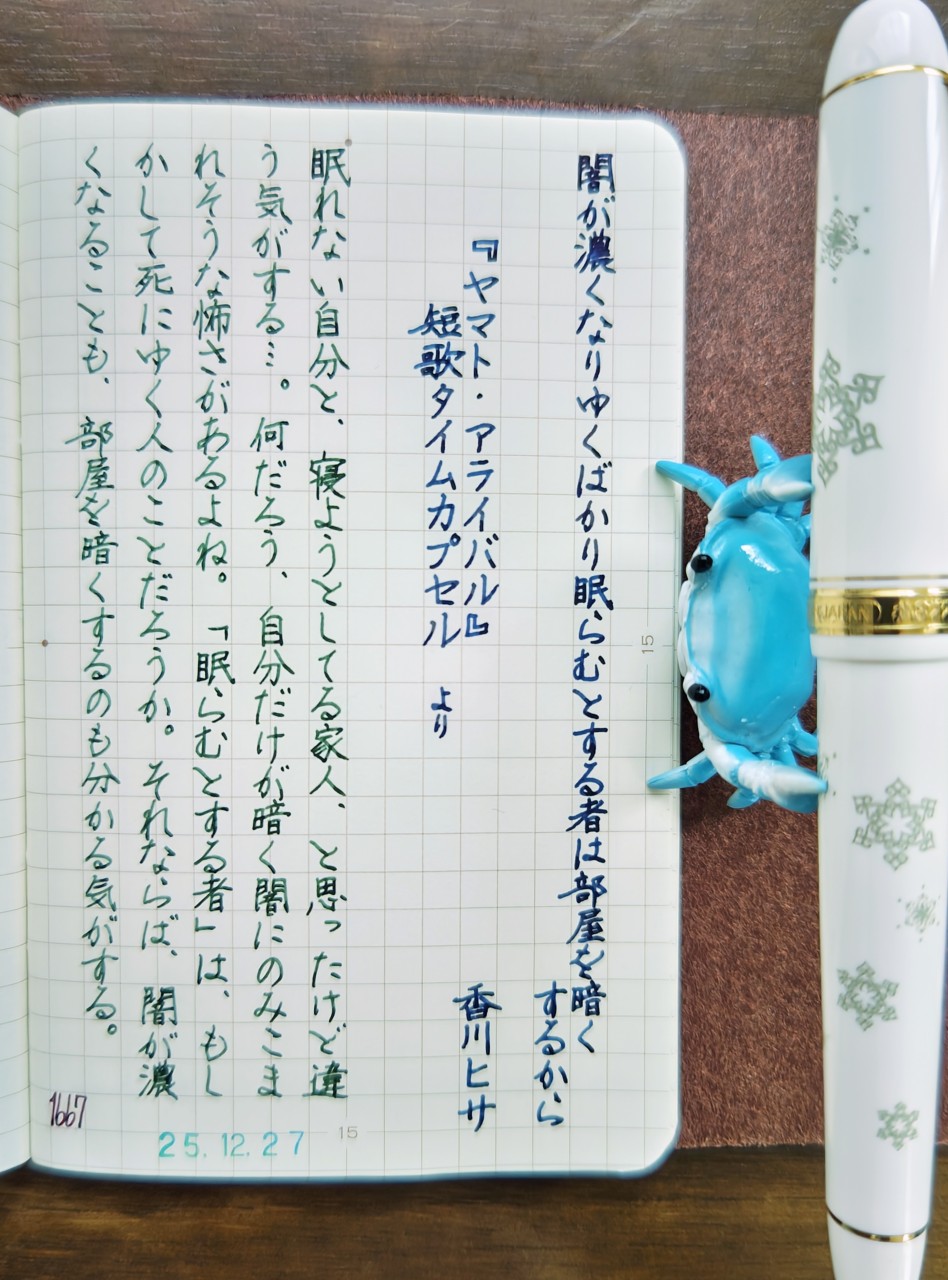 闇が濃くなりゆくばかり眠らむとする者は部屋を暗く
するから
香川ヒサ
『ヤマト・アライバル』
短歌タイムカプセル　より
眠れない自分と、寝ようとしてる家人、と思ったけど違
う気がする…。何だろう、自分だけが暗く闇にのみこま
れそうな怖さがあるよね。「眠らむとする者」は、もし
かして死にゆく人のことだろうか。それならば、闇が濃
くなることも、部屋を暗くするのも分かる気がする。
1667
25.12.27
15
15